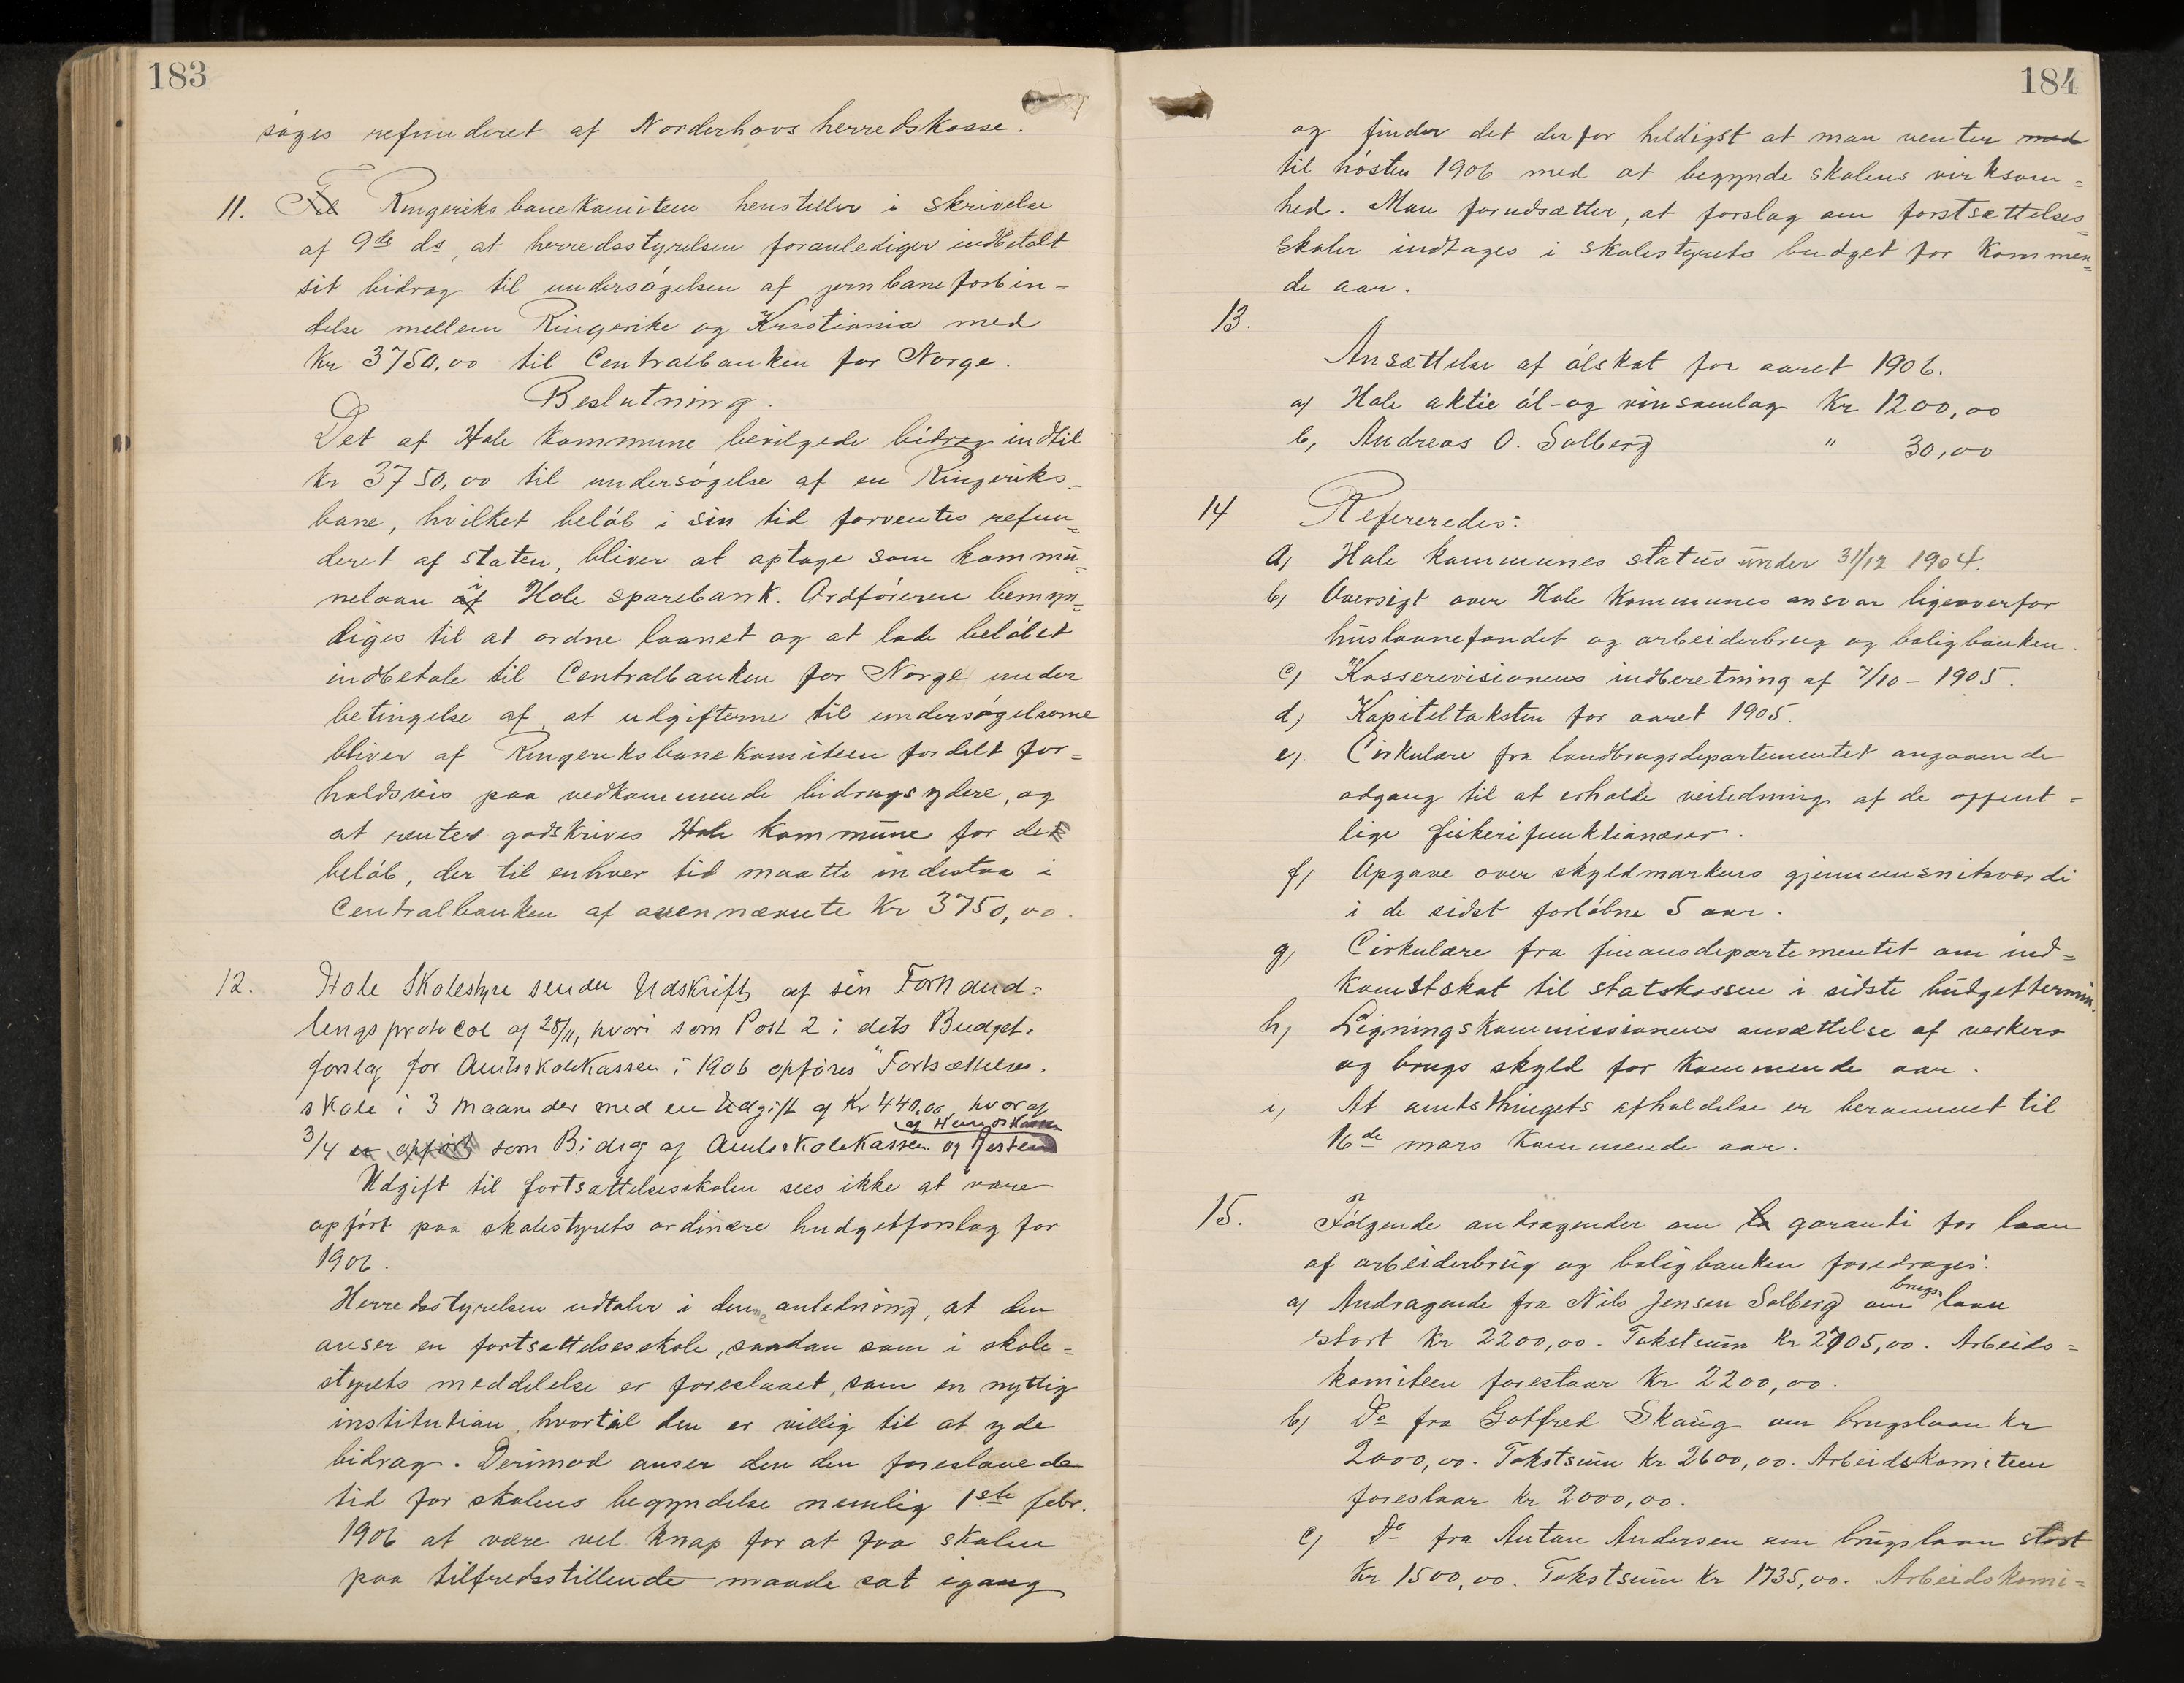 183
søges refunderet af Norderhovs herredskasse.
11. Til Ringeriksbanekomiteen henstiller i skrivelse
af 9de ds, at herredsstyrelsen foranlediger indbetalt
sit bidrag til undersøgelsen af jernbaneforbin=
delse mellem Ringerike og Kristiania med
Kr 3750,00 til Centralbanken for Norge.
Beslutning.
Det af Hole kommune bevilgede bidrag indtil
Kr 3750,00 til undersøgelse af en Ringeriks=
bane, hvilket beløb i sin tid forventes refun=
deret af staten, bliver at optage som kommu=
nelaan af i Hole sparebank. Ordføreren bemyn=
diges til at ordne laanet og at lade beløbet
indbetale til Centralbanken for Norge under
betingelse af, at udgifterne til undersøgelserne
bliver af Ringeriksbanekomiteen fordelt for=
holdsvis paa vedkommende bidragsydere, og
at renter godskrives Hole kommune for det
beløb, der til enhver tid maatte indestaa i
Centralbanken af ovennævnte Kr 3750,00.
12. Hole Skolestyre sender Udskrift af sin Forhand=
lingsprotocol af 28/11, hvori som Post 2 i dets Budget=
forslag for Amtsskolekassen i 1906 opføres "Fortsættelses=
skole i 3 Maaneder med en Udgift af Kr 440,00, hvoraf
3/4 er opført som Bidrag af Amtsskolekassen og Resten af Herredskassen
Udgift til fortsættelsesskolen sees ikke at være
opført paa skolestyrets ordinære budgetforslag for
1906.
Herredsstyrelsen udtaler i denne anledning, at den
anser en fortsættelsesskole, saadan som i skole=
styrets meddelelse er foreslaaet, som en nyttig
institution, hvortil den er villig til at yde
bidrag. Derimod anser den den foreslaaede
tid for skolens begyndelse nemlig 1ste febr.
1906 at være vel knap for at faa skolen
paa tilfredsstillende maade sat igang
184
og finder det derfor heldigst at man venter med
til høsten 1906 med at begynde skolens virksom=
hed. Man forudsætter, at forslag om forstsættelses=
skoler indtages i skolestyrets budget for kommen=
de aar.
13.
Ansættelse af ølskat for aaret 1906.
a) Hole aktie øl-og vinsamlag Kr 1200,00
b, Andreas O. Solberg " 30,00
14 Refereredes:
a) Hole kommunes status under 31/12 1904.
b) Oversigt over Hole kommunes ansvar ligeoverfor
huslaanefondet og arbeiderbrug og boligbanken.
c) Kasserevisionens indberetning af 7/10 – 1905.
d) Kapiteltaksten for aaret 1905.
e). Cirkulære fra landbrugsdepartementet angaaende
adgang til at erholde veiledning af de offent=
lige fiskerifunktionærer.
f) Opgave over skyldmarkens gjennemsnitsværdi
i de sidst forløbne 5 aar.
g) Cirkulære fra finansdepartementet om ind=
komstskat til statskassen i sidste budgettermin.
h) Ligningskommissionens ansættelse af verkers
og brugs skyld for kommende aar.
i) At amtsthingets afholdelse er berammet til
16de mars kommende aar.
15. Følgende andragender om la garanti for laan
af arbeiderbrug og boligbanken foredrages:
a) Andragende fra Nils Jensen Solberg om brugs laan
stort Kr 2200,00. Takstsum Kr 2705,00. Arbeids=
komiteen foreslaar Kr 2200,00.
b) Do fra Gotfred Skaug om brugslaan Kr
2000,00. Takstsum Kr 2600,00. Arbeidskomiteen
foreslaar Kr 2000,00.
c) Do fra Anton Andersen om brugslaan stort
Kr 1500,00. Takstsum Kr 1735,00. Arbeidskomi=